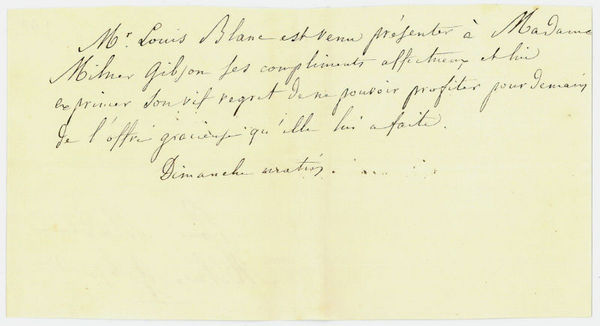 Mr Louis Blanc est venu présenter à Madame
Milner Gibson ses compliments affectueux et lui
exprimer son vif regret de ne pouvoir profiter pour demain
de l'offre gracieuse qu'elle lui a faite.
Dimanche